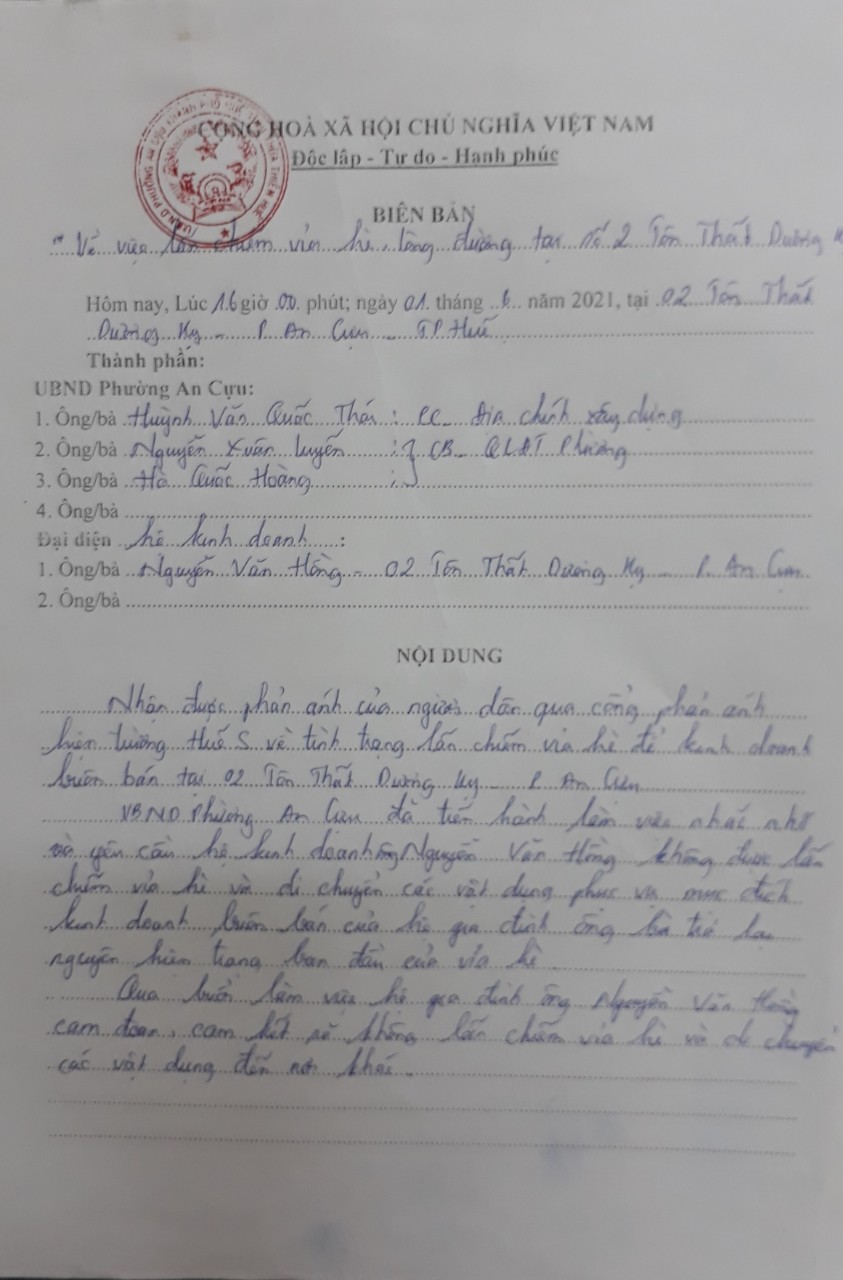 CỘNG HOÀ XÃ HỘI CHỦ NGHĨA VIỆT NAM
Độc lập - Tự do - Hạnh phúc
BIÊN BẢN
"Về việc lấn chiếm vỉa hè, lòng đường tại số 2 Tôn Thất Dương
Hôm nay, Lúc 16 giờ 00 phút; ngày 01 tháng 6 năm 2021, tại 02 Tôn Thất
Dương Kỵ - P. An Cựu - TP Huế
Thành phần:
UBND Phường An Cựu:
1. Ông/bà Huỳnh Văn Quốc Thái : CC Địa chính xây dựng
2. Ông/bà Nguyễn Xuân Luyến : } CB - QLĐT Phường
3. Ông/bà Hà Quốc Hoàng :
4. Ông/bà
Đại diện hộ kinh doanh :
1. Ông/bà Nguyễn Văn Hồng - 02 Tôn Thất Dương Kỵ - P. An Cựu
2. Ông/bà
NỘI DUNG
Nhận được phản ánh của người dân qua cổng phản ánh
hiện trường Huế S về tình trạng lấn chiếm vỉa hè để kinh doanh
buôn bán tại 02 Tôn Thất Dương Kỵ - P. An Cựu
UBND Phường An Cựu đã tiến hành làm việc nhắc nhở
và yêu cầu hộ kinh doanh ông Nguyễn Văn Hồng không được lấn
chiếm vỉa hè và di chuyển các vật dụng phục vụ mục đích
kinh doanh buôn bán của hộ gia đình ông bà trả lại
nguyên hiện trạng ban đầu của vỉa hè
Qua buổi làm việc hộ gia đình ông Nguyễn Văn Hồng
cam đoan, cam kết sẽ không lấn chiếm vỉa hè và di chuyển
các vật dụng đến nơi khác.